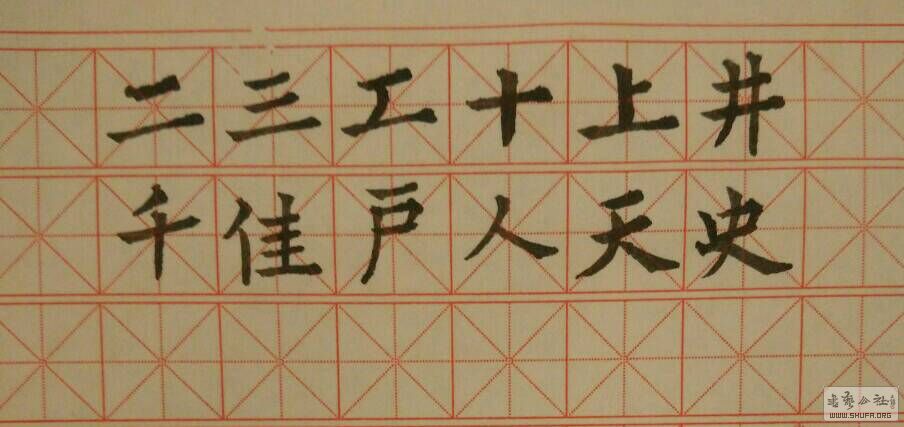 二三工十上井
千佳户人天史
WWW.SHUFA.ORG